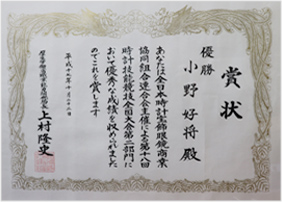 賞状
優勝
小野 好将 殿
あなたは全日本時計宝飾眼鏡商業
協同組合連合会主催による第十八回
時計技能競技全国大会第二部門に
おいて優秀な成績を収められました
のでこれを賞します
平成十九年十月二十三日
上村隆史